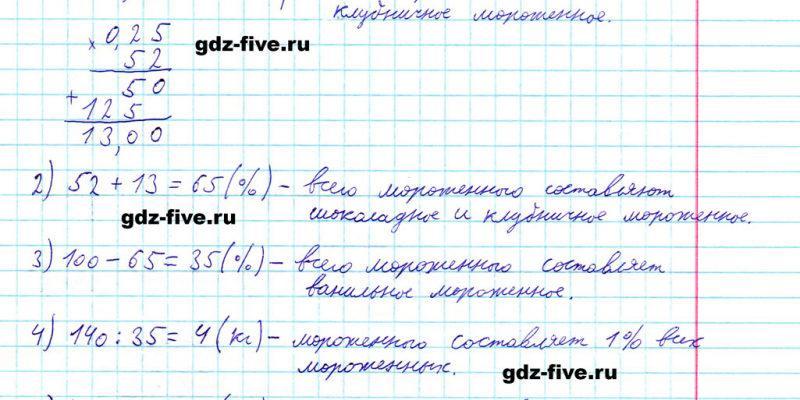 клубничное мороженное.
× 0,25
52
gdz-five.ru
+ 50
125
13,00
2) 52 + 13 = 65 (%) – всего мороженного составляют
gdz-five.ru
шоколадное и клубничное мороженное.
3) 100 – 65 = 35 (%) – всего мороженного составляет
ванильное мороженное.
4) 140 : 35 = 4 (кг) – мороженного составляет 1% всех
мороженных.
gdz-five.ru